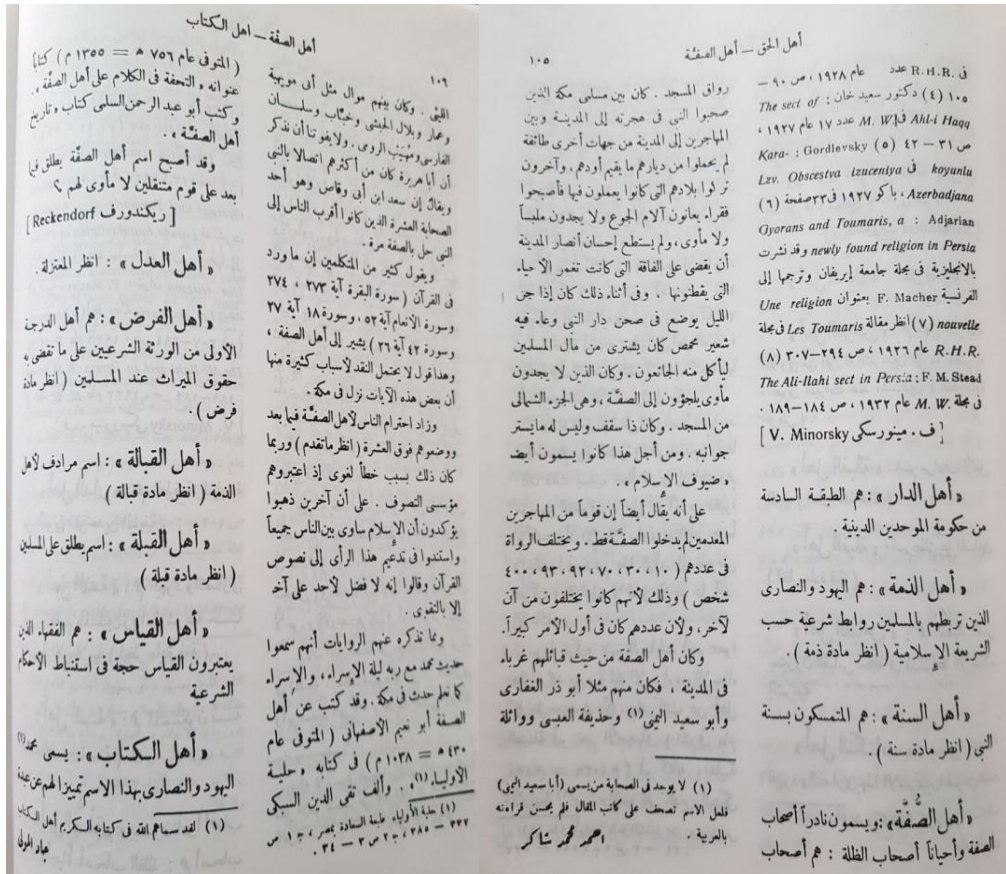 أهل الحق – أهل الصفّة
١٠٥
فى R.H.R. عدد عام ١٩٢٨ ، ص ٩٠ –
١٠٥ (٤) دكتور سعيد خان : The sect of
Ahl-i Haqq فى M. W. عدد ١٧ عام ١٩٢٧ ،
ص ٣١ – ٤٢ (٥) Gordlevsky : Kara-
koyunlu فى Lzv. Obscestva izuceniya
Azerbadjana ، باكو ١٩٢٧ فى ٣٣ صفحة (٦)
Adjarian : Gyorans and Toumaris, a
newly found religion in Persia وقد نشرت
بالإنجليزية فى مجلة جامعة إيريفان وترجمها إلى
الفرنسية F. Macher بعنوان Une religion
nouvelle (٧) انظر مقالة Les Toumaris فى مجلة
R.H.R. عام ١٩٢٦ ، ص ٢٩٤ – ٣٠٧ (٨)
The Ali-Ilahi sect in Persia : F. M. Stead
فى مجلة M. W. عام ١٩٣٢ ، ص ١٨٤ – ١٨٩ .
[ ف . مينورسكى V. Minorsky ]
« أهل الدار » : هم الطبقة السادسة
من حكومة الموحدين الدينية .
« أهل الذمة » : هم اليهود والنصارى
الذين تربطهم بالمسلمين روابط شرعيّة حسب
الشريعة الإسلامية ( انظر مادة ذمة ) .
« أهل السنة » : هم المتمسكون بسنة
النبي ( انظر مادة سنة ) .
« أهل الصُّفَّة » : ويسمون نادراً أصحاب
الصفة وأحياناً أصحاب الظلة : هم أصحاب
رواق المسجد . كان بين مسلمى مكة الذين
صحبوا النبى فى هجرته إلى المدينة وبين
المهاجرين إلى المدينة من جهات أخرى طائفة
لم يحملوا من ديارهم ما يقيم أودهم ، وآخرون
تركوا بلادهم التى كانوا يعملون فيها فأصبحوا
فقراء يعانون آلام الجوع ولا يجدون ملبساً
ولا مأوى ، ولم يستطع إحسان أنصار المدينة
أن يقضى على الفاقة التى كانت تغمر الأحياء
التى يقطنونها . وفى أثناء ذلك كان إذا جن
الليل يوضع فى صحن دار النبى وعاء فيه
شعير محمص كان يشترى من مال المسلمين
ليأكل منه الجائعون . وكان الذين لا يجدون
مأوى يلجؤون إلى الصفَّة ، وهى الجزء الشمالى
من المسجد . وكان ذا سقف وليس له ما يستر
جوانبه . ومن أجل هذا كانوا يسمون أيضـ
« ضيوف الإسلام » .
على أنه يقال أيضاً إن قوماً من المهاجرين
المعدمين لم يدخلوا الصفَّة قط . ويختلف الرواة
فى عددهم ( ١٠ ، ٣٠ ، ٧٠ ، ٩٢ ، ٩٣ ، ٤٠٠
شخص ) وذلك لأنهم كانوا يختلفون من آن
لآخر ، ولأن عددهم كان فى أول الأمر كبيراً .
وكان أهل الصفة من حيث قبائلهم غرباء
فى المدينة ، فكان منهم مثلا أبو ذر الغفارى
وأبو سعيد اليمنى (١) وحذيفة العبسى وواثلة
(١) لا يوجد فى الصحابة من يسمى (أبا سعيد اليمنى)
فلعل الاسم تصحف على كاتب المقال فلم يحسن قراءته
بالعربية .
احمد محمد شاكر
أهل الصفّة – أهل الكتاب
١٠٦
الليثى . وكان بينهم موال مثل أبى مويهبة
وعمار وبلال الحبشى وخبَّاب وسلمان
الفارسى وصُهَيْب الرومى . ولا يفوتنا أن نذكر
أن أبا هريرة كان من أكثرهم اتصالا بالنبى
ويقال إن سعد ابن أبى وقاص وهو أحد
الصحابة العشرة الذين كانوا أقرب الناس إلى
النبى حل بالصفة مرة .
ويقول كثير من المتكلمين إن ما ورد
فى القرآن ( سورة البقرة آية ٢٧٣ ، ٢٧٤
وسورة الأنعام آية ٥٢ ، وسورة ١٨ آية ٢٧
وسورة ٤٢ آية ٢٦ ) يشير إلى أهل الصفة ،
وهذا قول لا يحتمل النقد لأسباب كثيرة منها
أن بعض هذه الآيات نزل فى مكة .
وزاد احترام الناس لأهل الصفَّة فيما بعد
ووضعوهم فوق العشرة ( انظر ما تقدم ) وربما
كان ذلك بسبب خطأ لغوى إذ اعتبروهم
مؤسسى التصوف . على أن آخرين ذهبوا
يؤكدون أن الإسلام ساوى بين الناس جميعاً
واستندوا فى تدعيم هذا الرأى إلى نصوص
القرآن وقالوا إنه لا فضل لأحد على آخر
إلا بالتقوى .
ومما تذكره عنهم الروايات أنهم سمعوا
حديث محمد مع ربه ليلة الإسراء ، والإسراء
كما نعلم حدث فى مكة . وقد كتب عن أهل
الصفة أبو نعيم الأصفهانى ( المتوفى عام
٤٣٠ ه = ١٠٣٨ م ) فى كتابه « حلية
الأولياء (١) » . وألف تقى الدين السبكى
(١) حلية الأولياء ، طبعة السعادة بمصر ، ج ١ ص
٣٣٧ – ٣٨٥ ، ج ٢ ص ٣ – ٣٤ .
( المتوفى عام ٧٥٦ ه = ١٣٥٥ م ) كتاباً
عنوانه « التحفة فى الكلام على أهل الصفّة » .
وكتب أبو عبد الرحمن السلمى كتاب « تاريخ
أهل الصفَّة » .
وقد أصبح اسم أهل الصفّة يطلق فيما
بعد على قوم متنقلين لا مأوى لهم ؟
[ ريكندورف Reckendorf ]
« أهل العدل » : انظر المعتزلة .
« أهل الفرض » : هم أهل الدرجة
الأولى من الورثة الشرعيين على ما تقضى به
حقوق الميراث عند المسلمين ( انظر مادة
فرض ) .
« أهل القبالة » : اسم مرادف لأهل
الذمة ( انظر مادة قبالة )
« أهل القبلة » : اسم يطلق على المسلمين
( انظر مادة قبلة )
« أهل القياس » : هم الفقهاء الذين
يعتبرون القياس حجة فى استنباط الأحكام
الشرعية
« أهل الكتاب » : يسمى محمد (١)
اليهود والنصارى بهذا الاسم تمييزاً لهم عن عبدة
(١) لقد سماهم الله فى كتابه الكريم أهل الكتاب